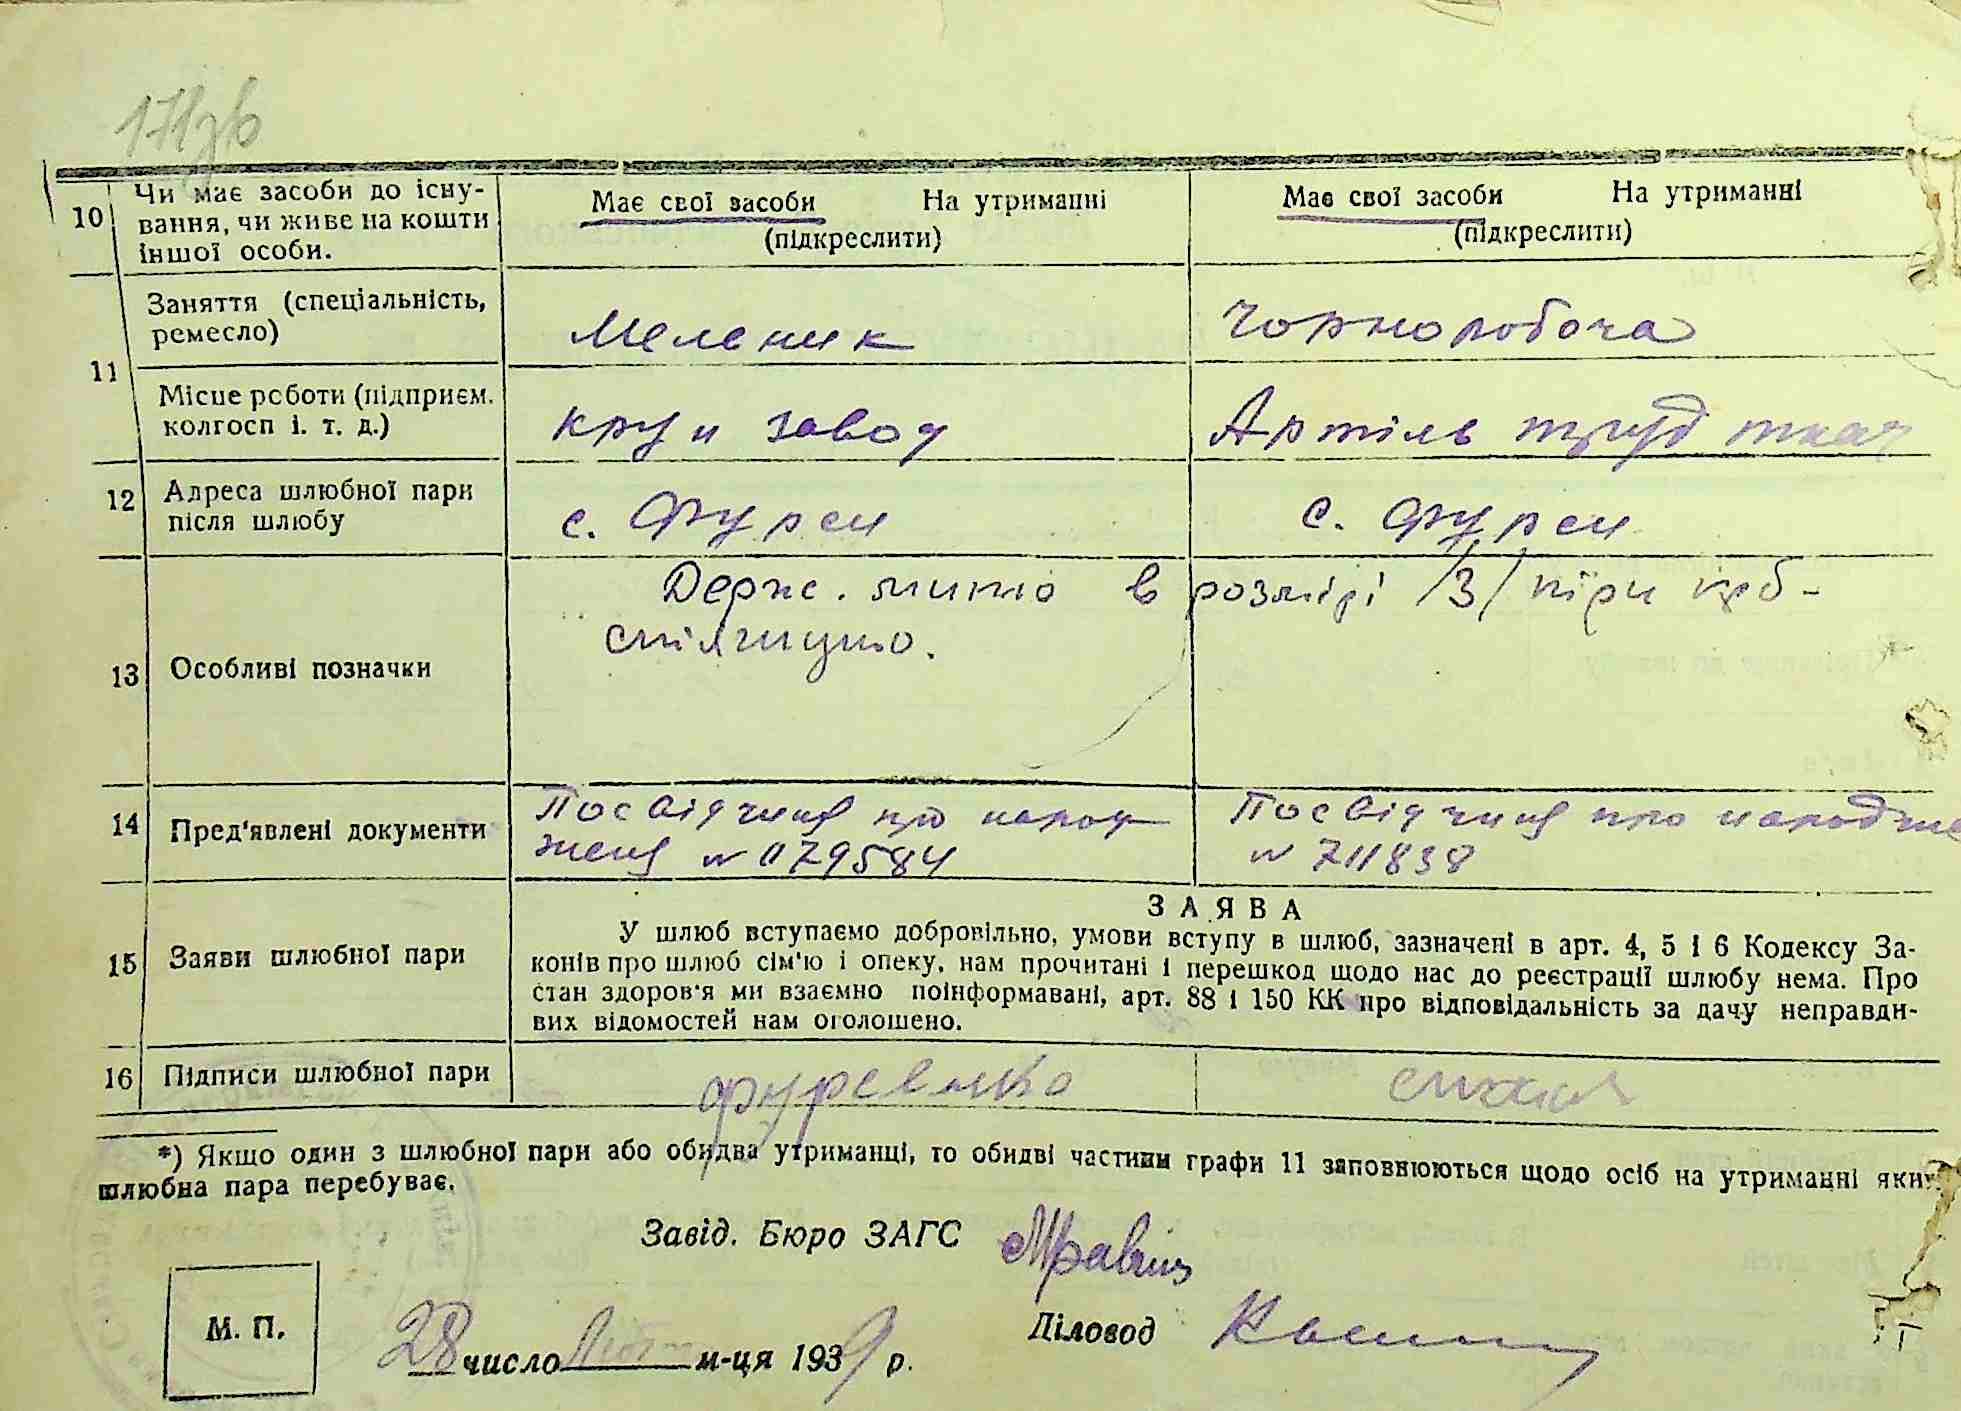 171зв
10 Чи має засоби до існу-
вання, чи живе на кошти
іншої особи.
Має свої засоби На утриманні
(підкреслити)
Має свої засоби На утриманні
(підкреслити)
11 Заняття (спеціальність,
ремесло)
Меленик
Чорноробоча
Місце роботи (підприєм.
колгосп і. т. д.)
круп завод
Артіль труд ткач
12 Адреса шлюбної пари
після шлюбу
с. Фурси
с. Фурси
13 Особливі позначки
Держ. мито в розмірі /3/ три крб-
стягнуто.
14 Пред'явлені документи
Посвідчиня про народ
женя № 079584
Посвідчиня про народже
№ 711838
15 Заяви шлюбної пари
ЗАЯВА
У шлюб вступаємо добровільно, умови вступу в шлюб, зазначені в арт. 4, 5 і 6 Кодексу За-
конів про шлюб сім'ю і опеку, нам прочитані і перешкод щодо нас до реєстрації шлюбу нема. Про
стан здоров'я ми взаємно поінформавані, арт. 88 і 150 КК про відповідальність за дачу неправди-
вих відомостей нам оголошено.
16 Підписи шлюбної пари
Фурсенко
*) Якщо один з шлюбної пари або обидва утриманці, то обидві частини графи 11 заповнюються щодо осіб на утриманні яких
шлюбна пара перебуває.
Завід. Бюро ЗАГС
М. П.
Діловод
28 число Лютого м-ця 1939 р.